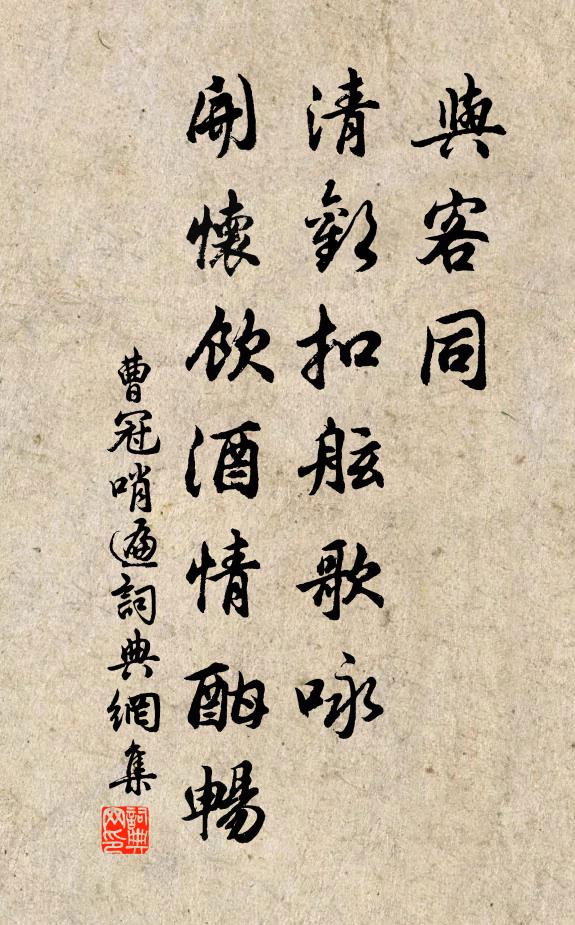 與客同
清歡扣舷歌咏
開懷飲酒情酣暢
曹冠哨遍詞典網集
詞典网印